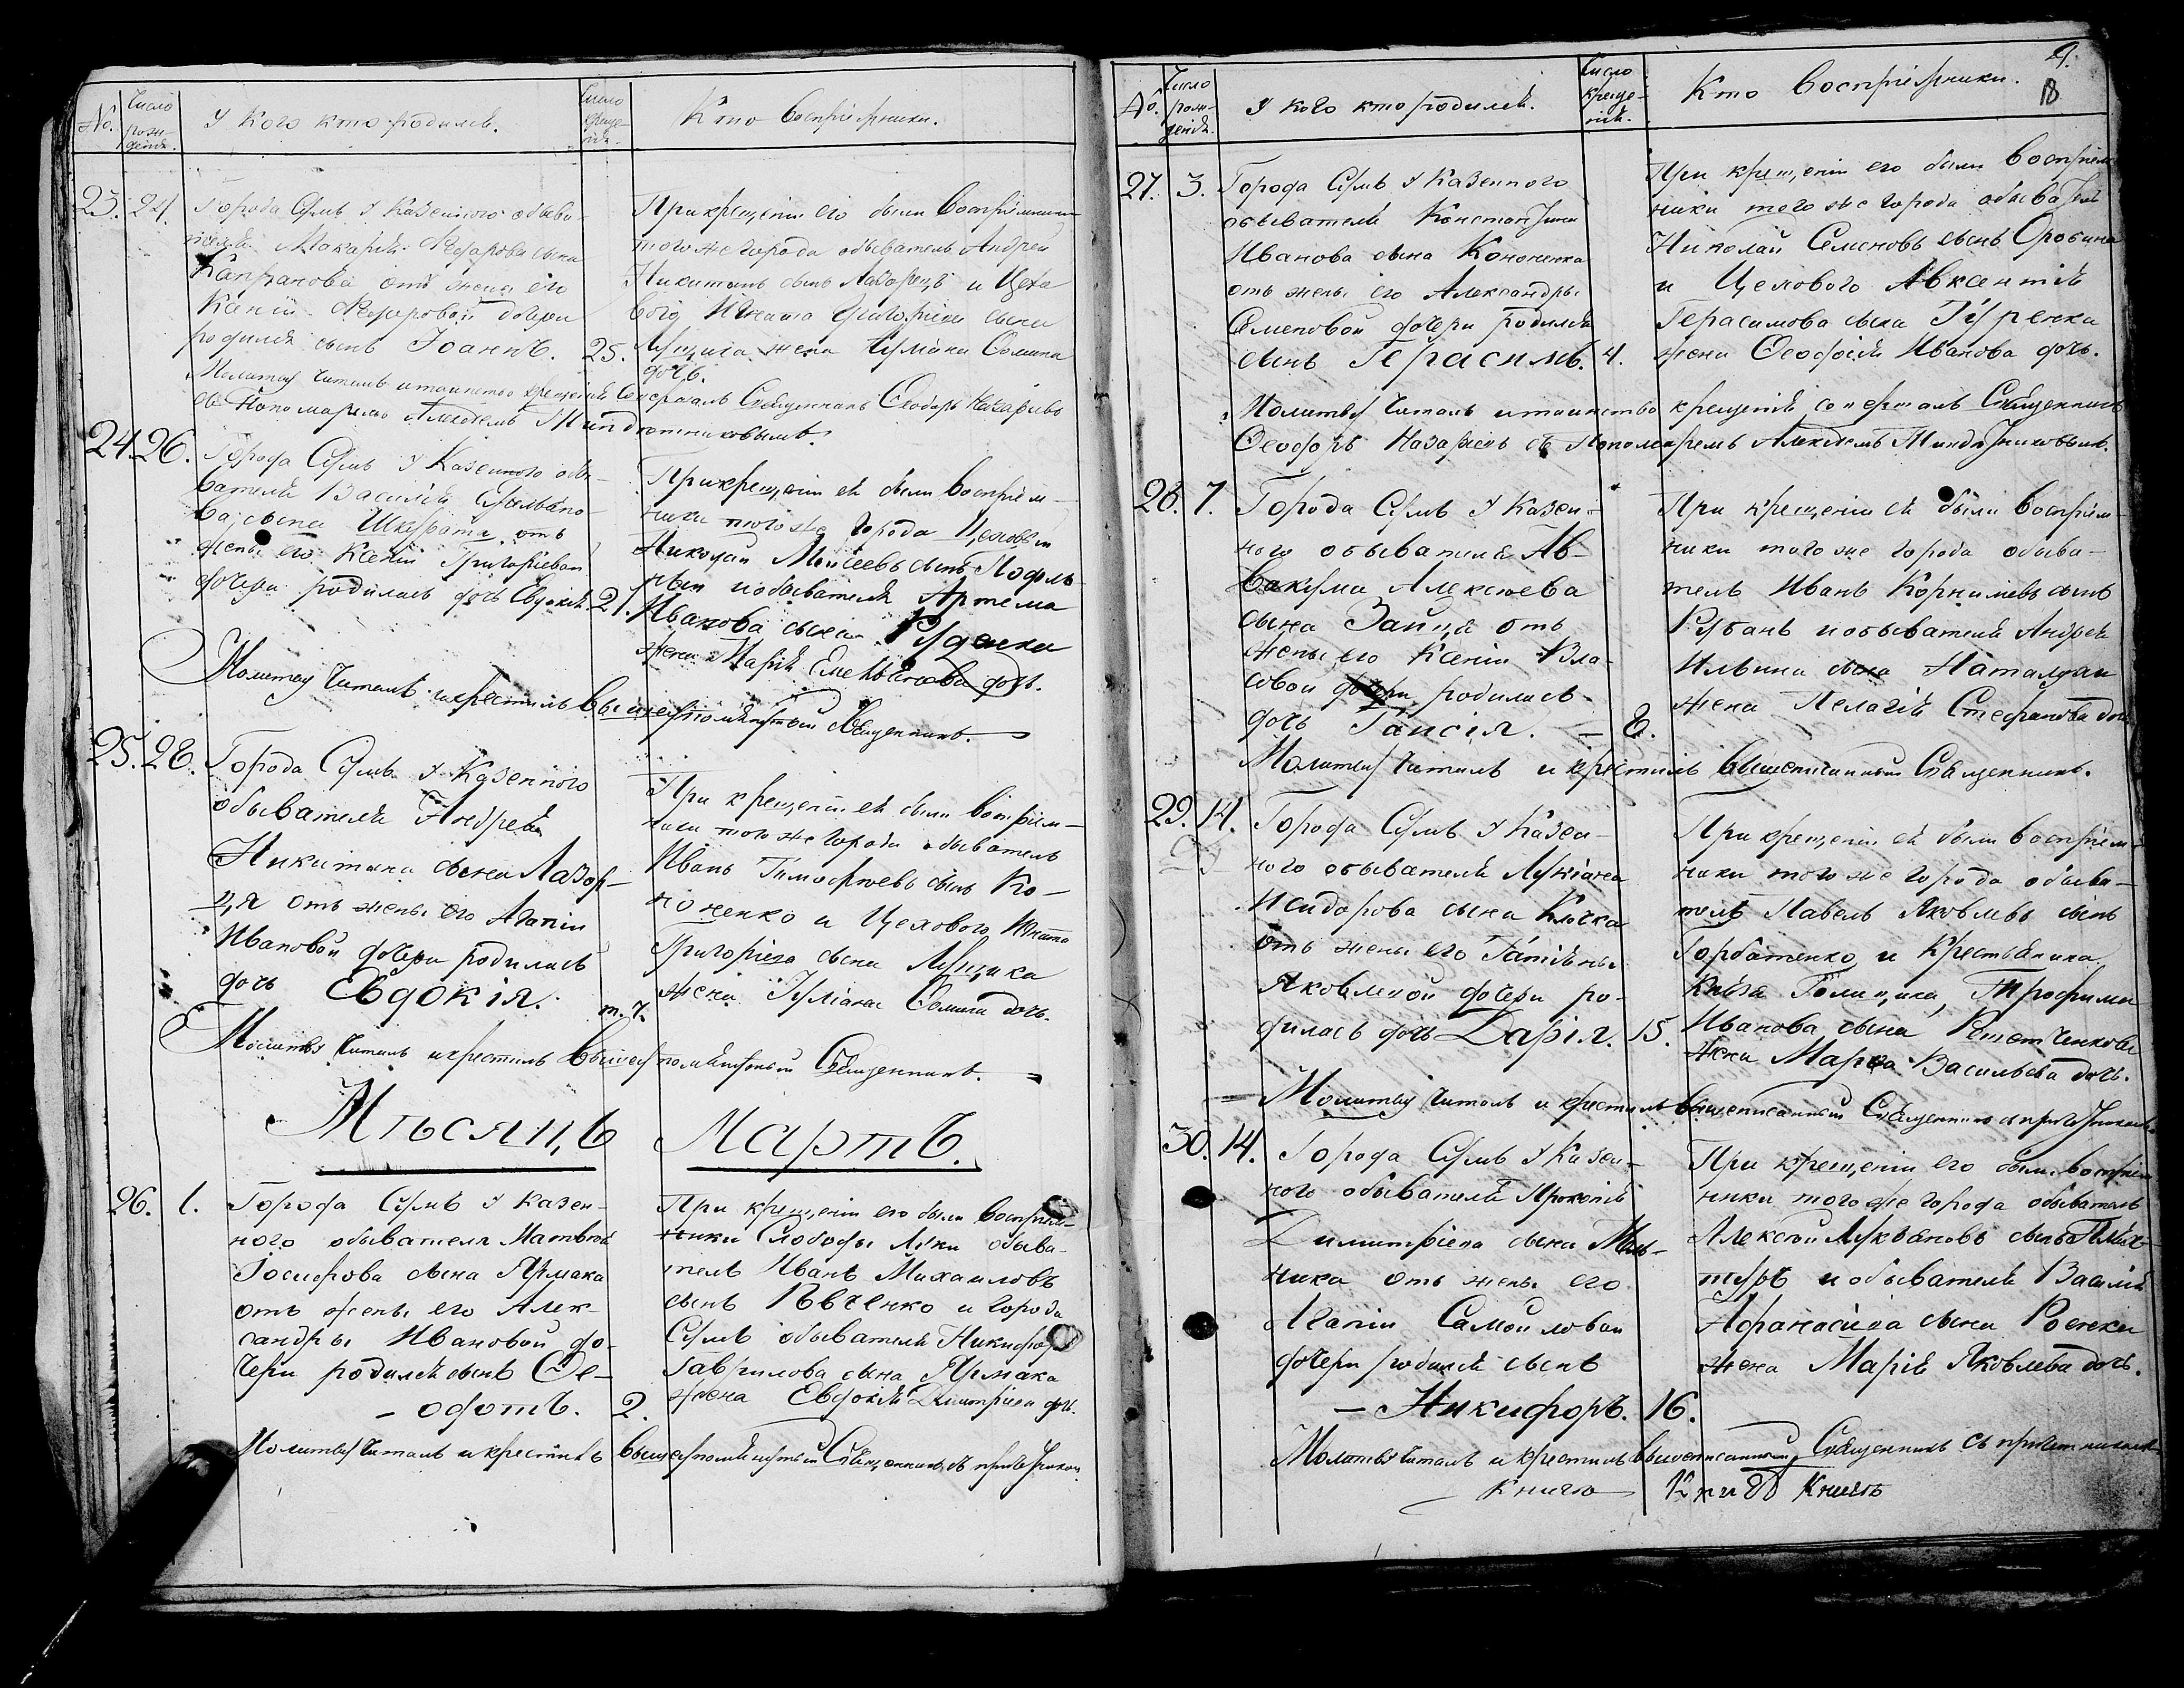 No.
Число рожденія.
У Кого кто родился.
Число крещенія.
Кто Воспріемники.
23. 24.
Города Сумъ у Казенного обыва-
теля Макарія Назарова сына
Капранова отъ жены его
Ксеніи дочери
родился сынъ Іоаннъ. 25.
При крещеніи его были Воспріемники
того же города обыватель Андрей
Никитинъ сынъ Лазорецъ и Цехо
вого Игната Григоріева сына
Лущика жена Іуліана Сомина
дочь.
Молитву читалъ и таинство крещенія Совершалъ Священникъ Ѳеодоръ Назаріевъ
съ Пономаремъ Алексѣемъ
24. 26.
Города Сумъ у Казенного обы-
вателя Василія
ва сына Шкурата отъ
жены его Ксеніи Григоріевой
дочери родилась дочь Евдокія. 27.
При крещеніи ея были Воспріем-
ники того же города Цеховый
Николай Моисеевъ сынъ
и обывателя Артема
Иванова сына Руденка
жена Марія Емельянова дочь.
Молитву Читалъ и крестилъ Вышеупомянутый Священникъ.
25. 28.
Города Сумъ у Казенного
обывателя Андрея
Никитина сына Лазор-
ця отъ жены его Агапіи
Ивановой дочери родилась
дочь Евдокія. m. 1.
При крещеніи ея были Воспріем-
ники того же города обыватель
Иванъ Тимофѣевъ сынъ Ко-
ноненко и Цехового Игната
Григоріева сына Лущика
жена Іуліана Сомина дочь.
Молитву Читалъ и крестилъ Вышеупомянутый Священникъ.
Мѣсяцъ Мартъ.
26. 1.
Города Сумъ у Казен-
ного обывателя Матвѣя
Іосифова сына Ярмака
отъ жены его Алек-
сандры Ивановой до-
чери родился сынъ Ѳе-
одотъ. 2.
При крещеніи его были Воспріем-
ники Слободы Луки обыва-
тель Иванъ Михаиловъ
сынъ и города
Сумъ обывателя Никифора
Гаврилова сына Ярмака
жена Евдокія Димитріева дочь.
Молитву Читалъ и крестилъ Вышеупомянутый Священникъ съ причетникомъ
No.
Число рожденія.
У кого кто родился.
Число крещенія.
Кто Воспріемники.
9.
18
27. 3.
Города Сумъ у Казенного
обывателя Константина
Иванова сына Кононенка
отъ жены его Александры
Семеновой дочери родился
сынъ Герасимъ. 4.
При крещеніи его были Воспріем
ники того же города обыватель
Николай Семеновъ сынъ
и Цехового Авксентія
Герасимова сына Гуренка
жена Ѳеодосія Иванова дочь.
Молитву Читалъ и таинство крещенія совершалъ Священникъ
Ѳеодоръ Назаріевъ съ Пономаремъ Алексѣемъ
28. 7.
Города Сумъ у Казен-
ного обывателя Ав-
вакума Алексѣева
сына Зайця отъ
жены его Ксеніи Вла-
совой дочери родилась
дочь Таисія. – 8.
При крещеніи ея были Воспріем-
ники того же города обыва-
тель Иванъ Корнилевъ сынъ
Рубанъ и обывателя Андрея
Ильина сына
жена Пелагія Стефанова дочь
Молитву Читалъ и крестилъ Вышеписанный Священникъ.
29. 14.
Города Сумъ у Казен-
ного обывателя Лукіана
Исидорова сына Клочка
отъ жены его Татіаны
Яковлевой дочери ро-
дилась дочь Дарія. 15.
При крещеніи ея были Воспріем-
ники того же города обыва-
тель Павелъ Яковлевъ сынъ
Горбатенко и Крестьянина
Князя Голицина, Трофима
Иванова сына
жена Марѳа Васильева дочь.
Молитву Читалъ и крестилъ Вышеписанный Священникъ съ причетникомъ
30. 14.
Города Сумъ у Казен-
ного обывателя Прокопія
Димитріева сына Мель-
ника отъ жены его
Агапіи Самойловой
дочери родился сынъ
– Никифоръ. 16.
При крещеніи его были Воспріем
ники того же города обыватель
Алексѣй Лукьяновъ сынъ
и обывателя Василія
Афанасіева сына
жена Марія Яковлева дочь.
Молитву Читалъ и крестилъ Вышеписанный Священникъ съ причетникомъ